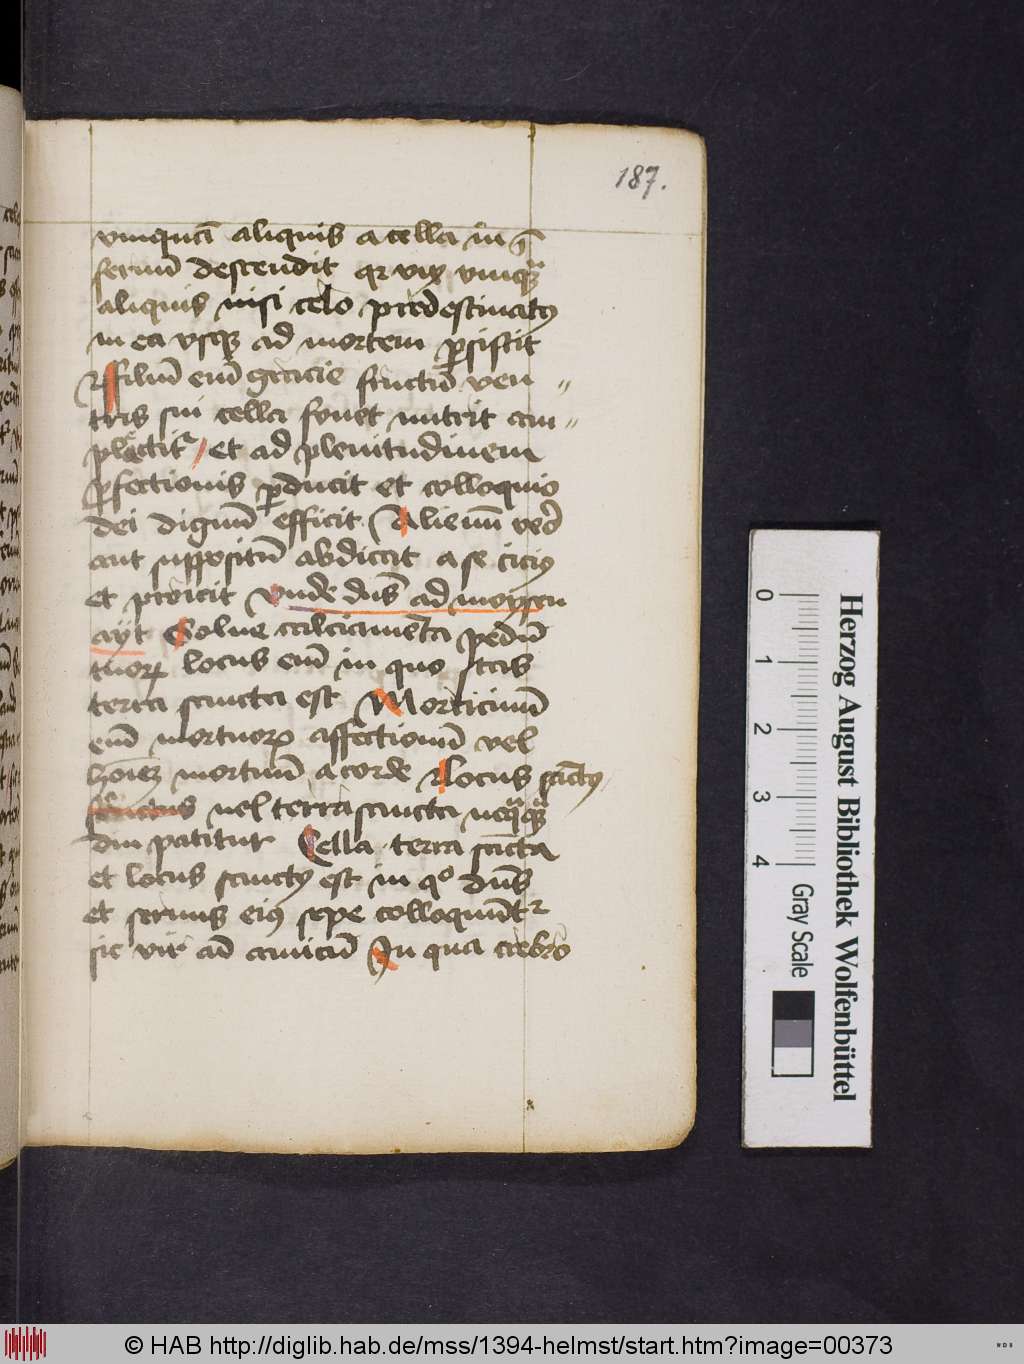 187.
vmqua̅ aliquis a cella in
fernu̅ descendit qr vix vmq̅
aliquis nisi celo predestinatꝰ
in ea vsqꝫ ad mortem ꝑsistit
ffiliu̅ eni̅ gracie fructu̅ ven〃
tris sui cella fouet nutrit am〃
plectitr / et ad plenitudinem
ꝑfectionis ꝑducit et colloquio
dei dignu̅ efficit Alienu̅ vero
aut suppositu̅ abdicat a se ciciꝰ
et proicit vnde dn̅s ad moysen
ayt Solue calciame̅ta pedu̅
tuoꝝ locus eni̅ in quo stas
terra sancta est Morticinu̅
eni̅ mortuoꝝ affectionu̅ vel
ho̅iem mortuu̅ a corde locus sanctꝰ
vel terra sancta neq̅q̅
diu patitur Cella terra sancta
et locus sanctꝰ est in qo dn̅s
et seruus eiꝰ sepe colloquu̅tr
sic vir ad amicu̅ In qua crebro
0 1 2 3 4
Gray Scale
Herzog August Bibliothek Wolfenbüttel
© HAB http://diglib.hab.de/mss/1394-helmst/start.htm?image=00373